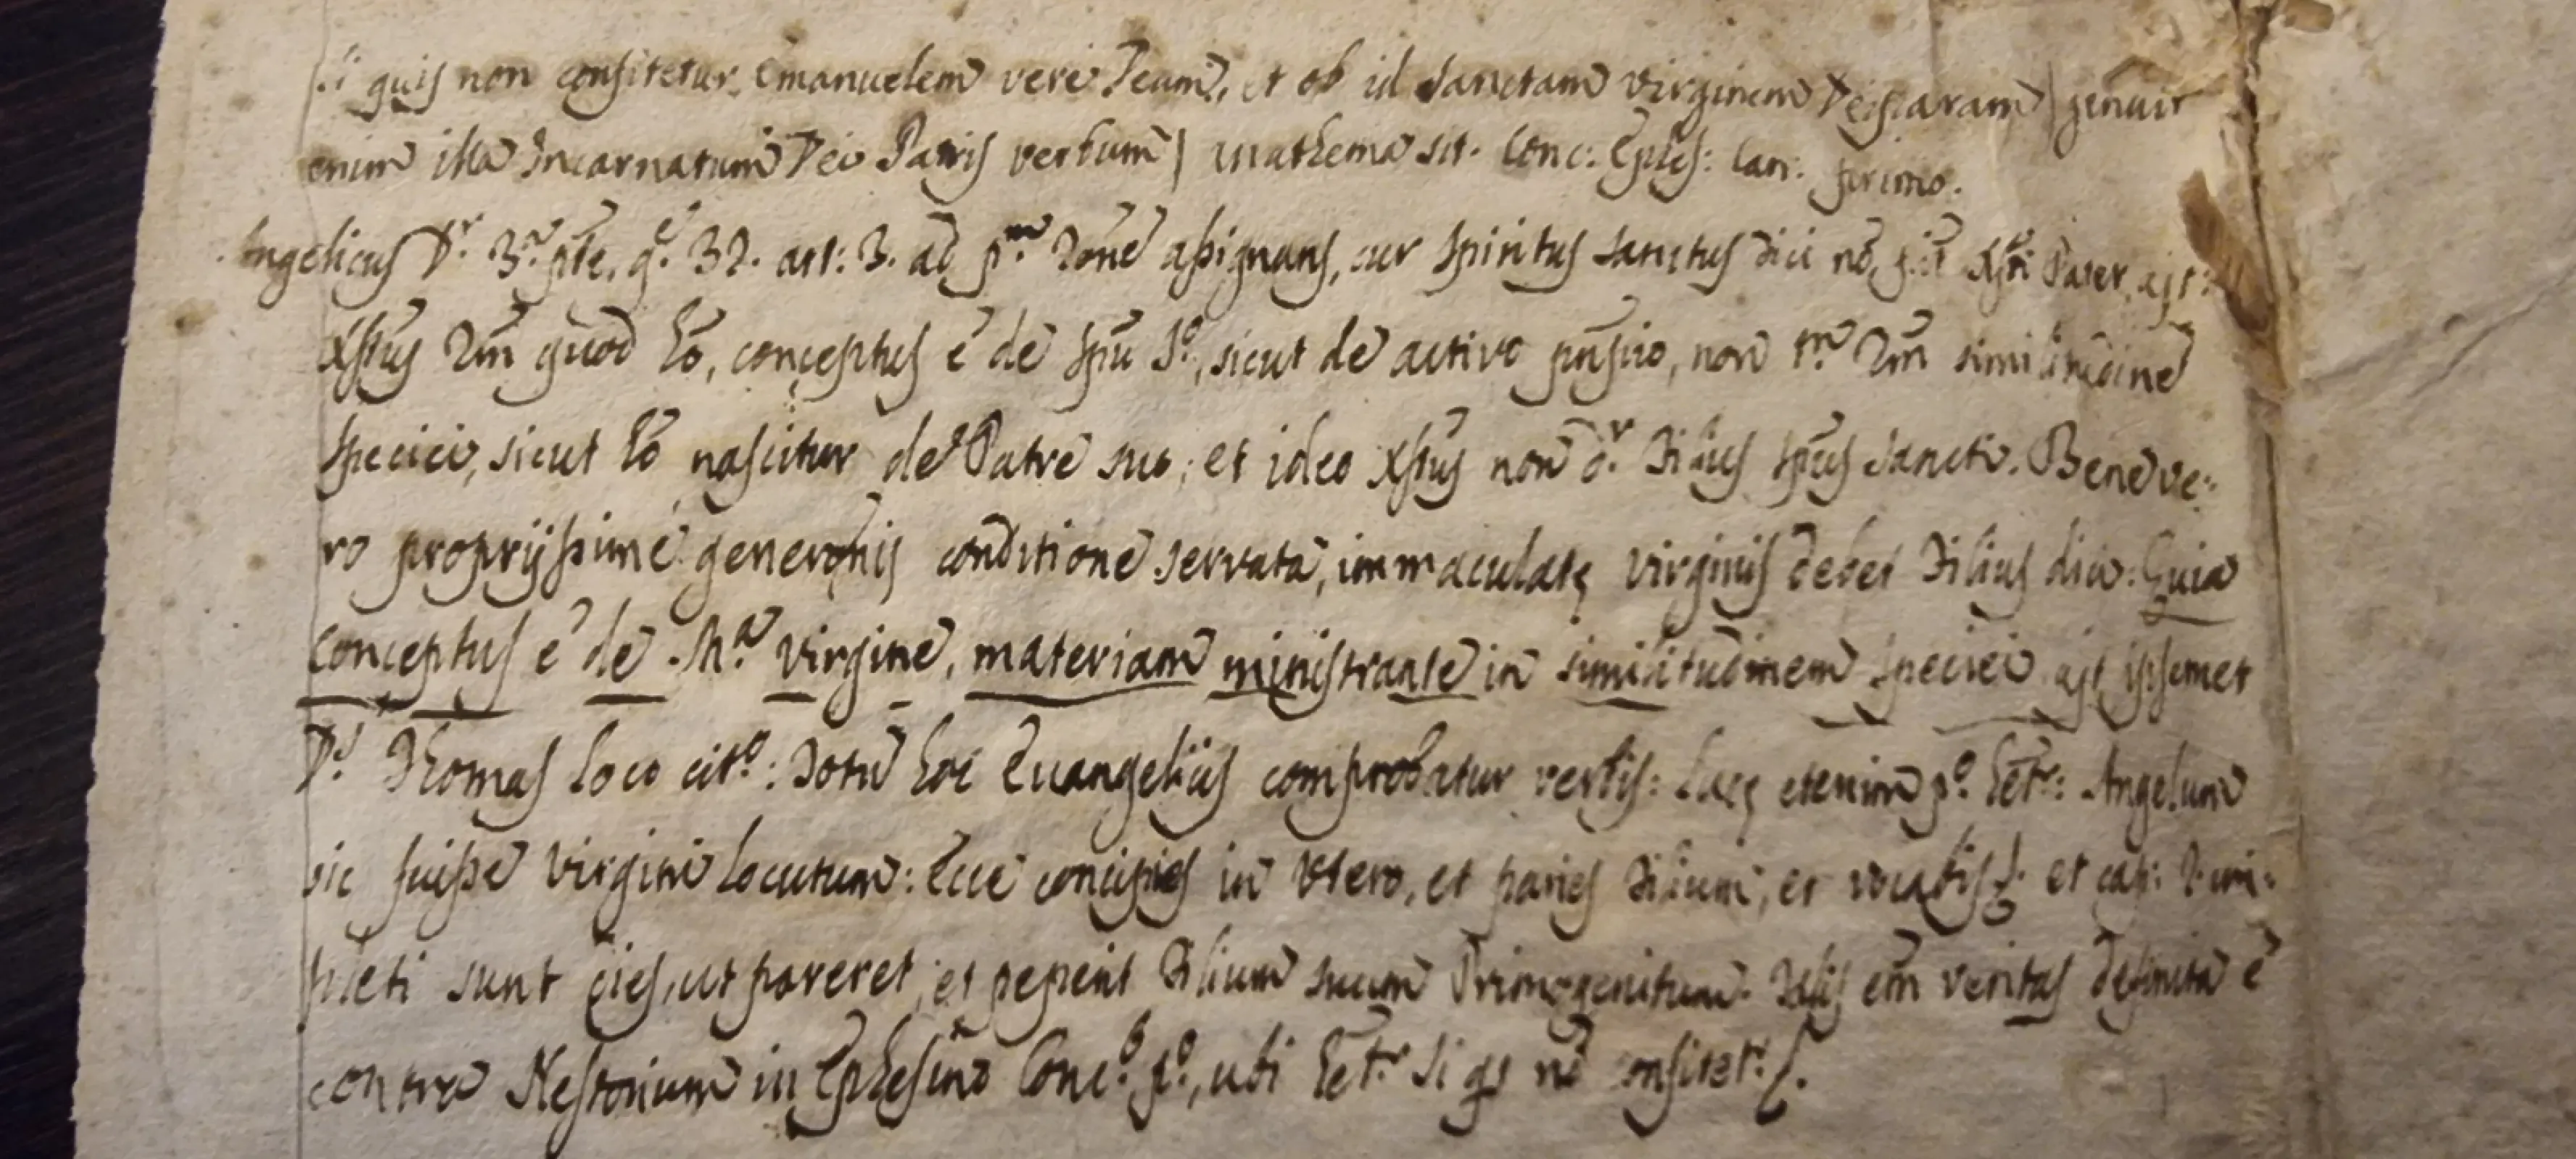 Si quis non confitetur Emanuelem vere Deum, et ob id Sanctam Virginem Deiparam | genuit
enim illa Incarnatum Dei Patris verbum | anathema sit. Conc: Ephes: Can: primo.
Angelicus Dr. 3a. pte. q. 32. art: 3. ad pm. rōne assignans, cur Spiritus Sanctus dici nō Xpi Pater, ajt:
Xpus 2m quod hō, conceptus ē de Spu So, sicut de activo prīpio, non tm. 2m similitudine
speciei, sicut hō nascitur de Patre suo; et ideo Xpus non dr. Filius Spus Sancti. Bene ve:
ro proprijssime generōnis conditione servata, immaculatę Virginis debet Filius dici: Quia
conceptus ē de Ma. Virgine, materiam ministrante in similitudinem speciei ajt ipsemet
Ds. Thomas loco cito: Totū hoc Evangelijs comprobatur verbis: Lucę etenim po. hetr: Angelum
sic fuisse Virgini locutum: Ecce concipies in Utero, et paries Filium, et vocabis &. et cap: 2 im:
pleti sunt dies, ut pareret, et peperit Filium suum Primogenitum. Talis em veritas definita ē
contra Nestorium in Ephesino Conco. po., ubi hetr. Si qs nō confitetr. &.